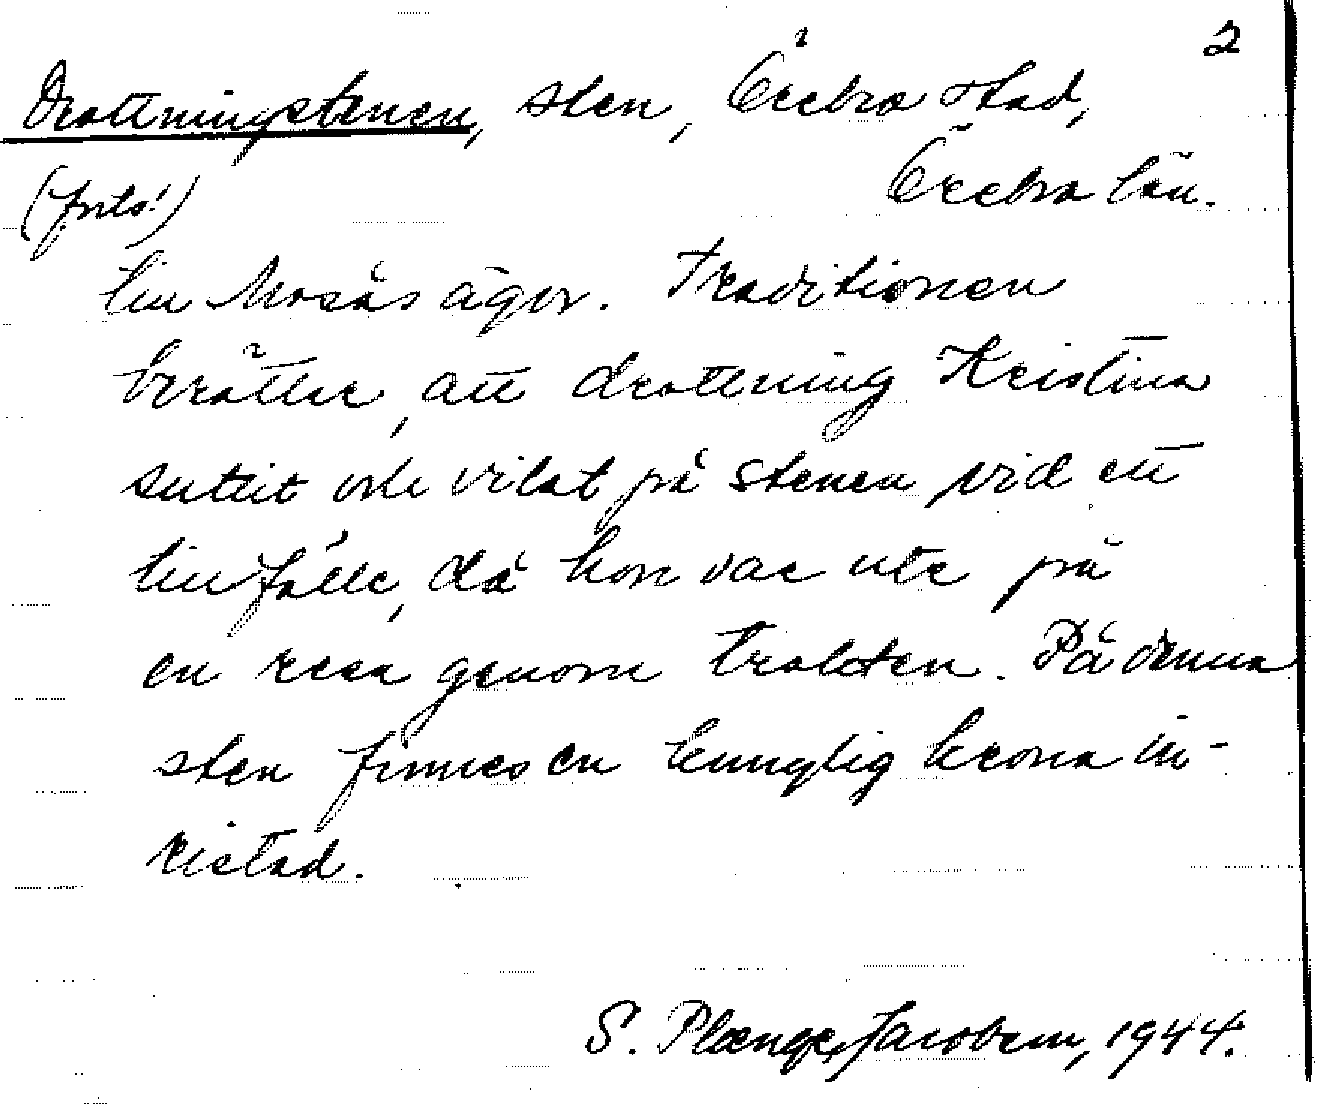 2
Drottningstenen, sten, Örebro stad,
(forts!) Örebro län.
till Mosås ägor. Traditionen
berättar, att drottning Kristina
suttit och vilat på stenen vid ett
tillfälle, då hon var ute på
en resa genom trakten. På denna
sten finnes en kunglig krona in-
ristad.
S. Plænge Jacobson, 1944.